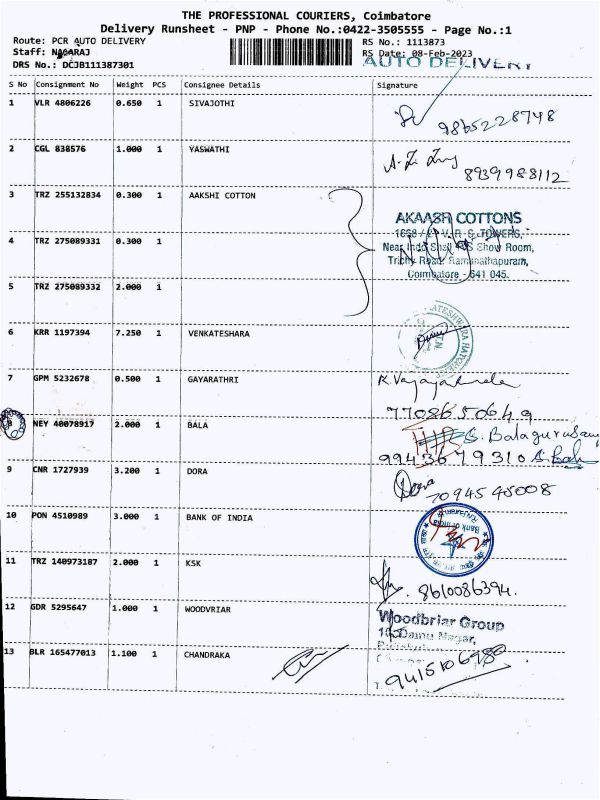 THE PROFESSIONAL COURIERS, Coimbatore
Delivery Runsheet - PNP - Phone No.:0422-3505555 - Page No.:1
Route: PCR AUTO DELIVERY RS No.: 1113873
Staff: NAGARAJ RS Date: 08-Feb-2023
DRS No.: DCJB111387301 AUTO DELIVERY
S No Consignment No Weight PCS Consignee Details Signature
1 VLR 4806226 0.650 1 SIVAJOTHI
9865228748
2 CGL 838576 1.000 1 YASWATHI
8939988112
3 TRZ 255132834 0.300 1 AAKSHI COTTON
AKAASH COTTONS
TOWERS,
4 TRZ 275089331 0.300 1
Near Show Room,
Trichy Road, Ramanathapuram,
Coimbatore - 641 045.
5 TRZ 275089332 2.000 1
6 KRR 1197394 7.250 1 VENKATESHARA
7 GPM 5232678 0.500 1 GAYARATHRI
7708650649
8 NEY 40078917 2.000 1 BALA
9943679310
9 CNR 1727939 3.200 1 DORA
Dora
7094545008
10 PON 4510989 3.000 1 BANK OF INDIA
Bank of India
11 TRZ 140973187 2.000 1 KSK
8610086394.
12 GDR 5295647 1.000 1 WOODVRIAR
Woodbriar Group
Nagar,
13 BLR 165477013 1.100 1 CHANDRAKA